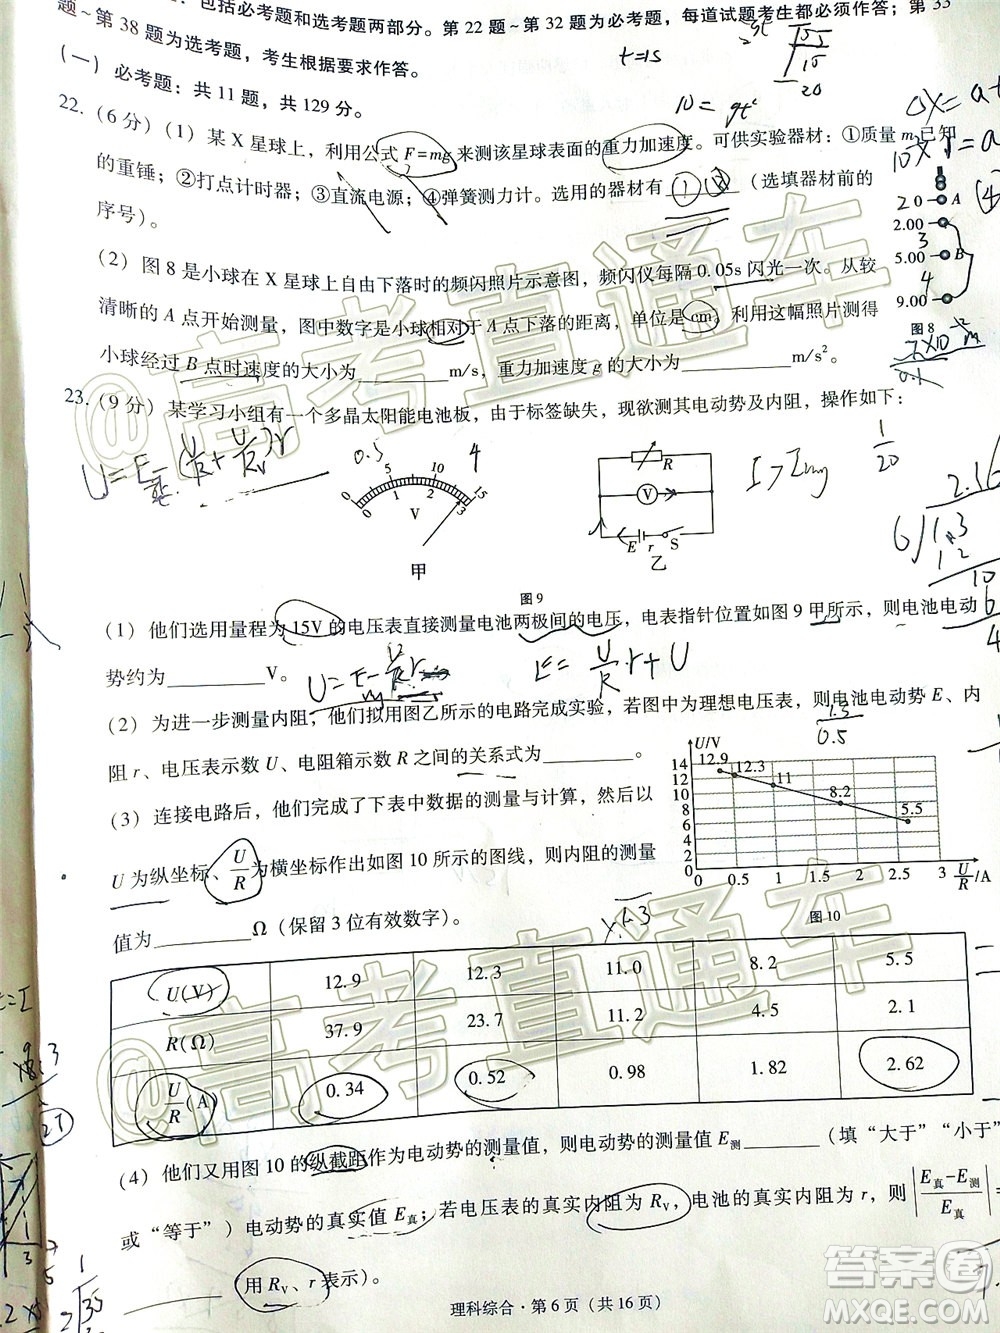 ：包括必考题和选考题两部分。第 22 题～第 32 题为必考题，每道试题考生都必须作答；第 33
题～第 38 题为选考题，考生根据要求作答。
（一）必考题：共 11 题，共 129 分。
t=1s
10 = gt²
22.（6 分）（1）某 X 星球上，利用公式 F=mg 来测该星球表面的重力加速度。可供实验器材：①质量 m 已知
的重锤；②打点计时器；③直流电源；④弹簧测力计。选用的器材有 ①④ （选填器材前的
序号）。
0 A
2.00
5.00 B
9.00
图 8
（2）图 8 是小球在 X 星球上自由下落时的频闪照片示意图，频闪仪每隔 0.05s 闪光一次。从较
清晰的 A 点开始测量，图中数字是小球相对于 A 点下落的距离，单位是 cm，利用这幅照片测得
小球经过 B 点时速度的大小为________m/s，重力加速度 g 的大小为________m/s²。
23.（9 分）某学习小组有一个多晶太阳能电池板，由于标签缺失，现欲测其电动势及内阻，操作如下：
0 5 10 15
0 1 2 3
V
甲
R
V
E r S
乙
图 9
（1）他们选用量程为 15V 的电压表直接测量电池两极间的电压，电表指针位置如图 9 甲所示，则电池电动
势约为________V。
E = U/R · r + U
（2）为进一步测量内阻，他们拟用图乙所示的电路完成实验，若图中为理想电压表，则电池电动势 E、内
阻 r、电压表示数 U、电阻箱示数 R 之间的关系式为________。
1.3
0.5
（3）连接电路后，他们完成了下表中数据的测量与计算，然后以
U 为纵坐标、U/R 为横坐标作出如图 10 所示的图线，则内阻的测量
值为________Ω（保留 3 位有效数字）。
U/V
14 12 10 8 6 4 2 0
12.9 12.3 11 8.2 5.5
0 0.5 1 1.5 2 2.5 3 U/R /A
图 10
U(V) 12.9 12.3 11.0 8.2 5.5
R(Ω) 37.9 23.7 11.2 4.5 2.1
U/R (A) 0.34 0.52 0.98 1.82 2.62
（4）他们又用图 10 的纵截距作为电动势的测量值，则电动势的测量值 E测________（填“大于”“小于”
或“等于”）电动势的真实值 E真；若电压表的真实内阻为 RV，电池的真实内阻为 r，则 |E真−E测/E真| =
________用 RV、r 表示）。
理科综合·第 6 页（共 16 页）
@高考直通车
@高考直通车
答案圈
MXQE.COM